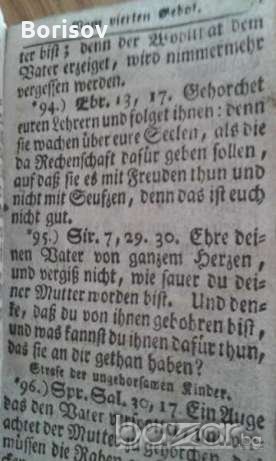 Borisov
vierten Gebot.
ter bist; denn der Wohltat dem
Vater erzeiget, wird nimmermehr
vergessen werden.
*94.) Ebr. 13, 17. Gehorchet
euren Lehrern und folget ihnen: denn
sie wachen über eure Seelen, als die
da Rechenschaft dafür geben sollen,
auf daß sie es mit Freuden thun und
nicht mit Seufzen, denn das ist euch
nicht gut.
*95.) Sir. 7, 29. 30. Ehre dei-
nen Vater von ganzem Herzen,
und vergiß nicht, wie sauer du dei-
ner Mutter worden bist. Und den-
ke, daß du von ihnen gebohren bist,
und was kannst du ihnen dafür thun,
das sie an dir gethan haben?
Strafe der ungehorsamen Kinder.
*96.) Spr. Sal. 30, 17. Ein Auge
das den Vater
achtet der Mutter zu gehorchen,
müssen die Raben
bazar.bg